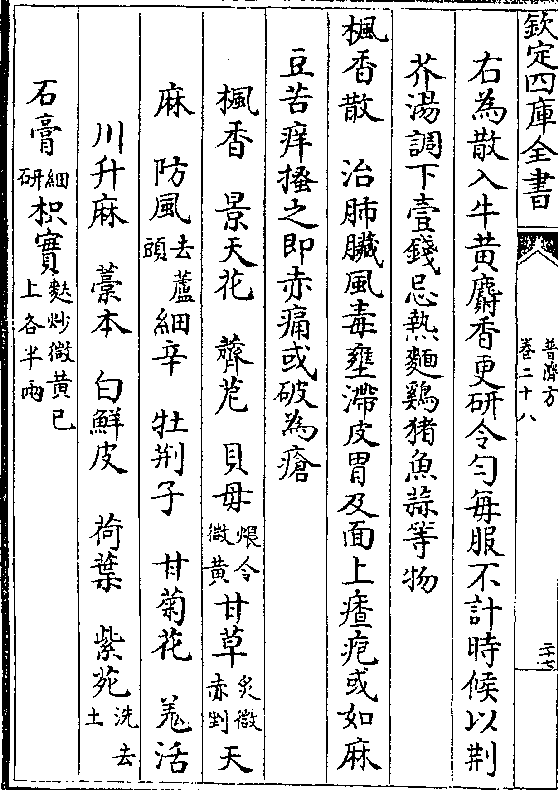 欽定四庫全書
普濟方
卷二十八
二十七
右為散入牛黃麝香更研令勻每服不計時候以荆
芥湯調下壹錢忌熱麵鷄猪魚蒜等物
楓香散 治肺臟風毒壅滯皮胃及面上㾴疱或如麻
豆苦痒搔之即赤痛或破為瘡
楓香 景天花 薺苨 貝母煨令微黃甘草炙微赤剉天
麻 防風去蘆頭細辛 牡荆子 甘菊花 羗活
川升麻 藁本 白鮮皮 荷葉 紫菀洗去土
石膏細研枳實麩炒微黃已上各半兩